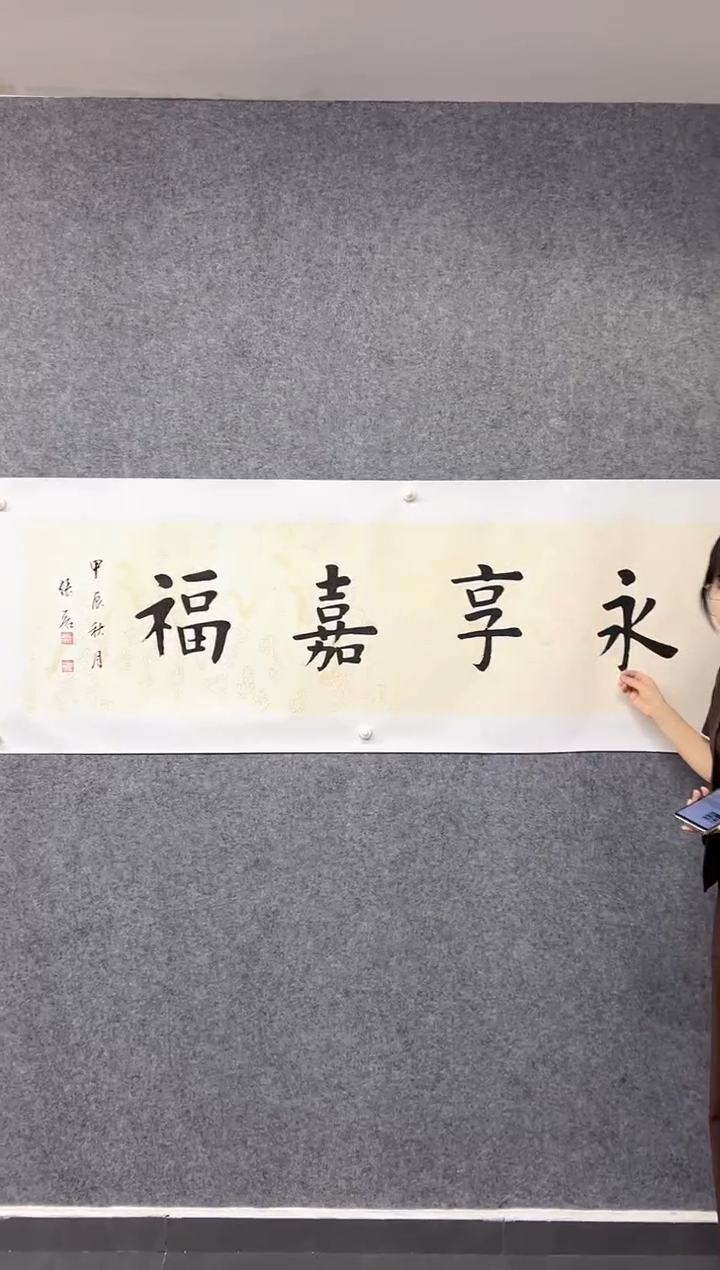 永享嘉福
甲辰秋月
张